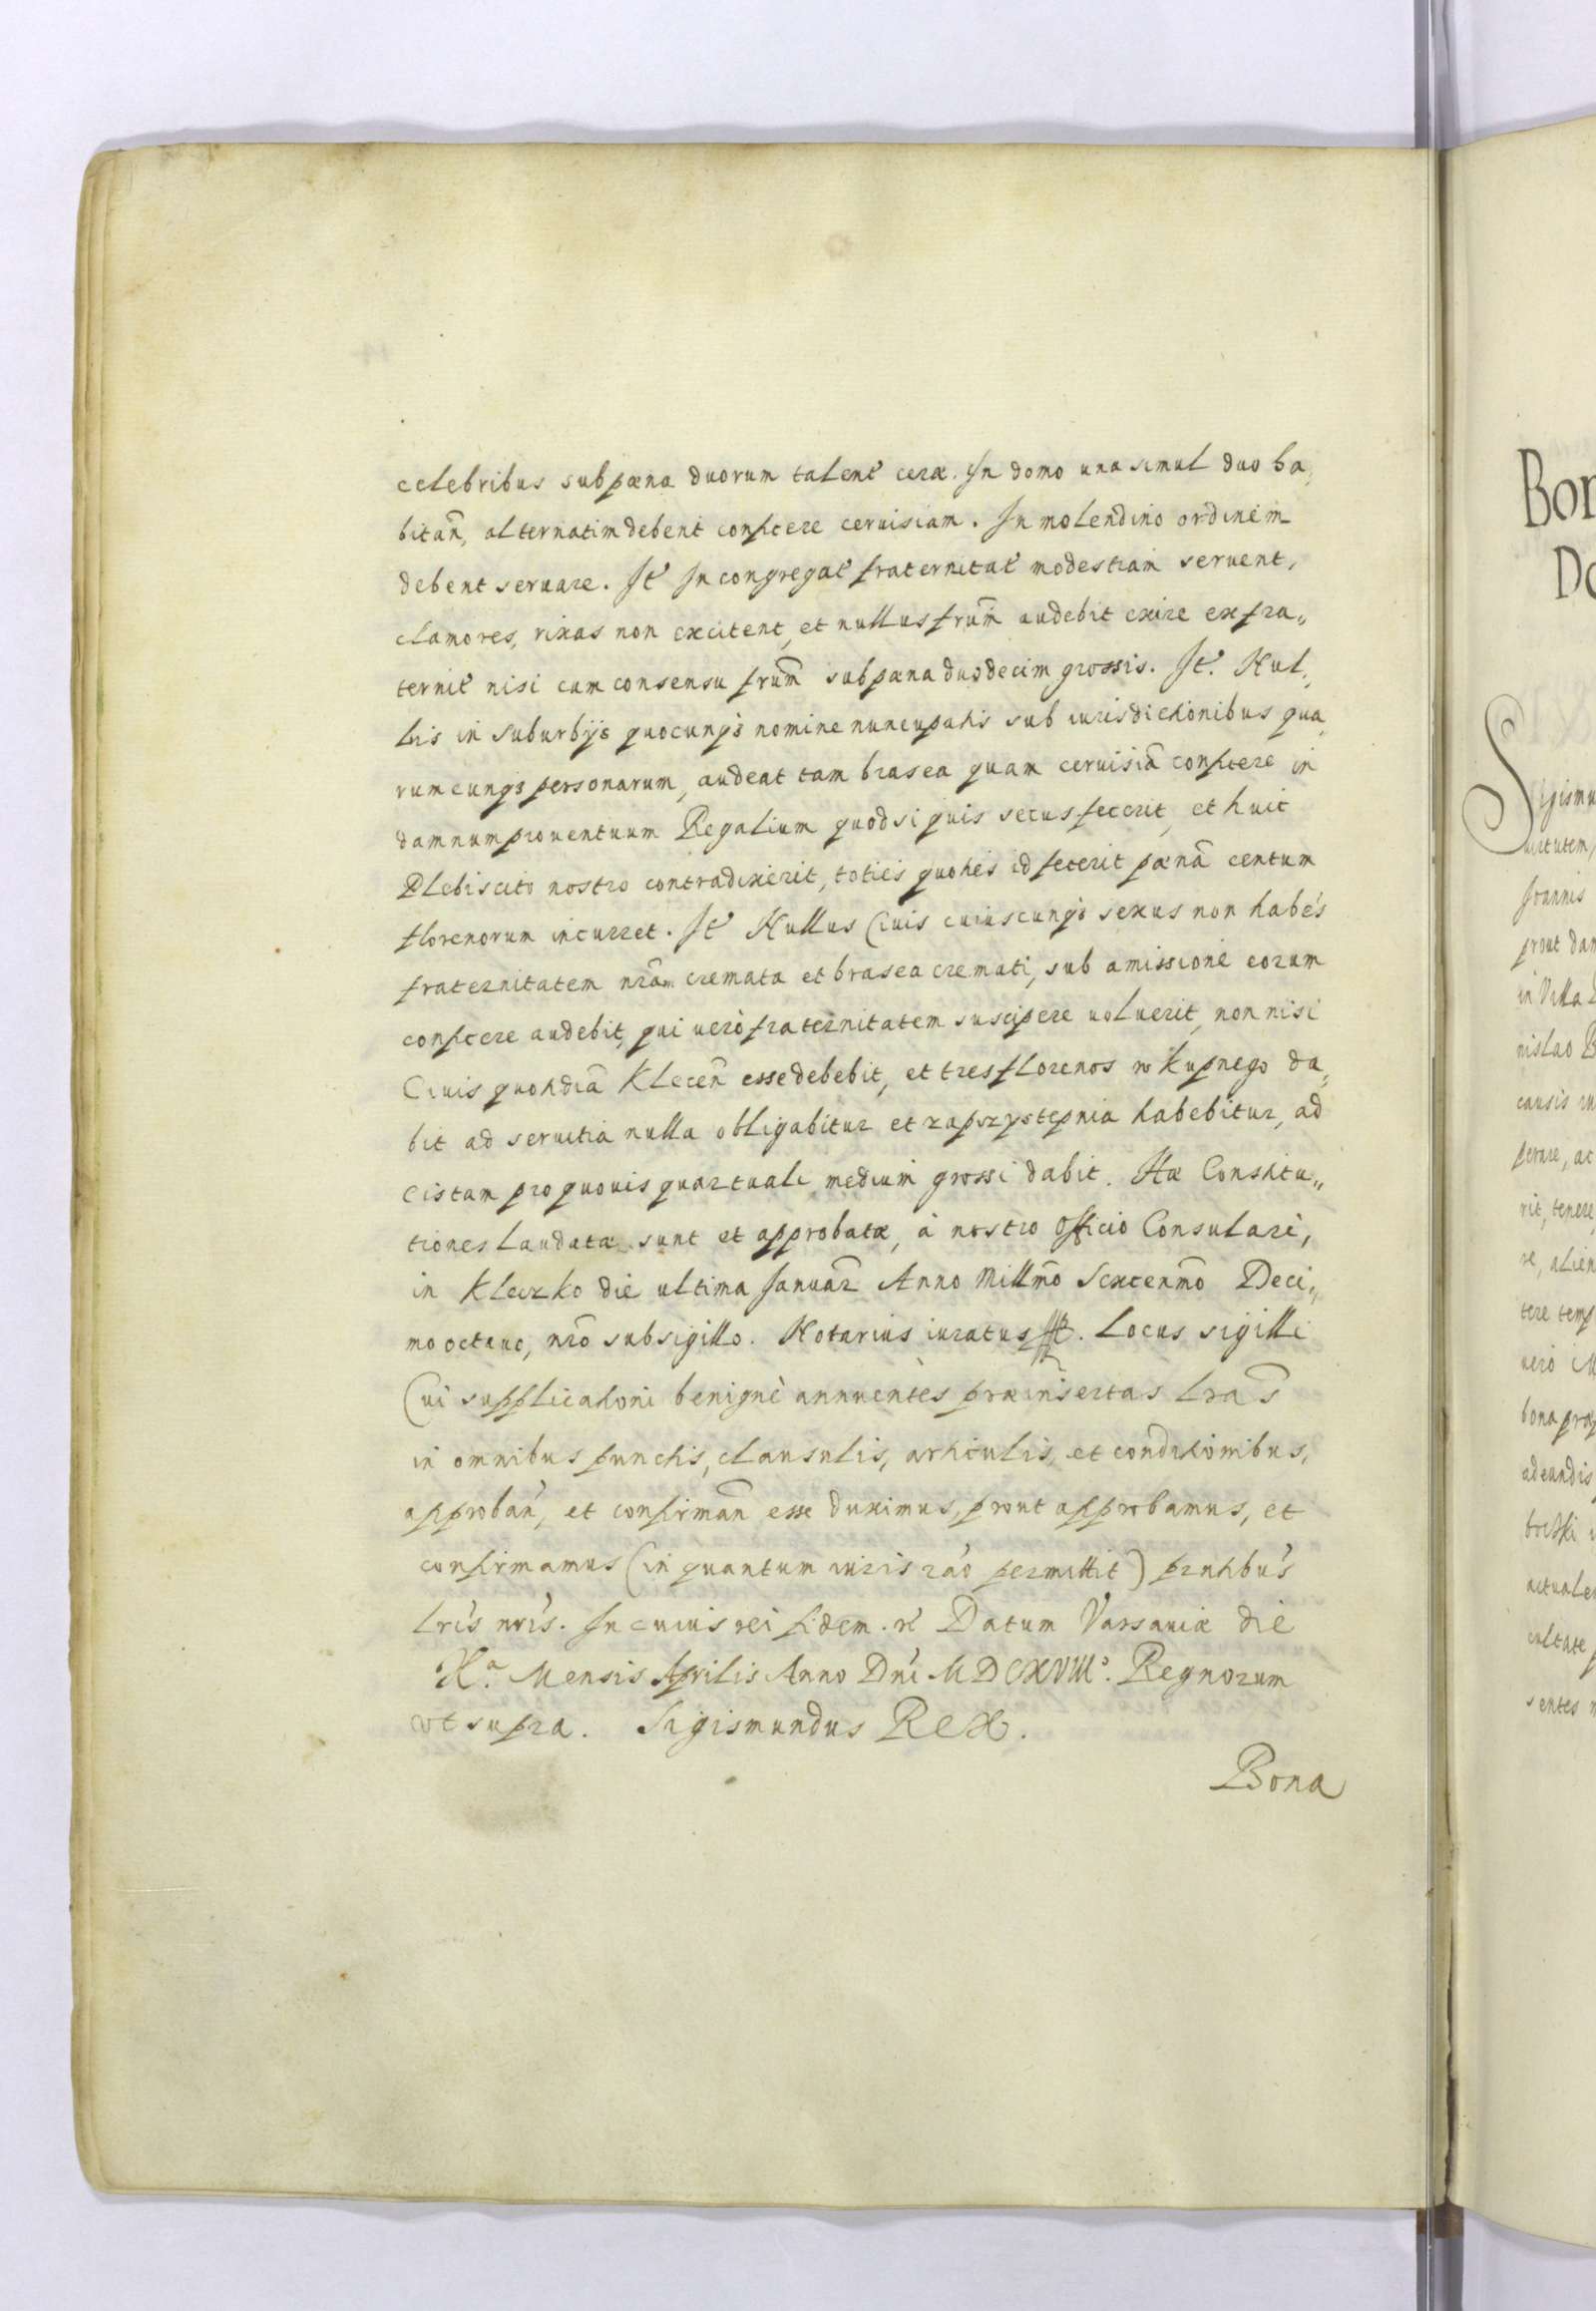 celebribus sub pæna duorum talent ceræ. In domo una simul duo ha„
bitan̄, alternatim debent conficere ceruisiam. In molendino ordinem
debent seruare. It In congregat fraternitat modestiam seruent,
clamores, rixas non excitent, et nullus frum̄ audebit exire ex fra„
ternit nisi cum consensu frum̄ sub pæna duodecim grossis. It. Nul„
lus in suburbijs quocunq3 nomine nuncupatis sub iurisdictionibus qua„
rumcunq3 personarum, audeat tam brasea quam ceruisiā conficere in
damnum prouentuum Regalium quod si quis secus fecerit, et huic
Plebiscito nostro contradixerit, toties quoties id fecerit pænā centum
florenorum incurret. It Nullus Ciuis cuiuscunq3 sexus non habe's
fraternitatem nrām cremata et brasea cremati, sub amissione eorum
conficere audebit, qui uerò fraternitatem suscipere uoluerit, non nisi
Ciuis quondiā Klecen̄ esse debebit, et tres florenos wkupnego da„
bit ad seruitia nulla obligabitur et zaprzystępnia habebitur, ad
cistam pro quouis quartuali medium grossi dabit. Hæ Constitu„
tiones laudatæ sunt et approbatæ, à nostro Officio Consulari,
in Kleczko die ultima Januar̄ Anno Millm̄o Sexcenm̄o Deci„
mo octauo, nrō sub sigillo. Notarius iuratus sst. Locus sigilli
Cui supplicationi benignè annuentes præinsertas lrās
in omnibus punctis, clausulis, articulis, et conditionibus,
approban̄, et confirman̄ esse duximus, prout approbamus, et
confirmamus (in quantum iuris rāo permittit) prntibus
lris nris. In cuius rei fidem. rč Datum Varsauiæ die
Xª. Mensis Aprilis Anno Dni MDCXVIIIº. Regnorum
vt supra. Sigismundus Rex.
Bona
Bon
Do
Sigismu
uirtutem,
Joannis
prout dan
in Villa
nislao B
causis
perare, ac
rit, tenere,
re, alien
tere temp
uero
bona præ
adeundis
actuale
cultate
sentes